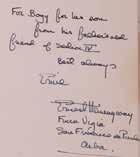 For Bogy for his son
from his
friend of
best always
Ernie
Ernest Hemingway
Finca Vigia
San Francisco de Paula
Cuba.